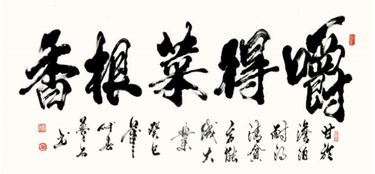 嚼得菜根香
甘於
澹泊
耐得
清貧
方能
成大
癸巳